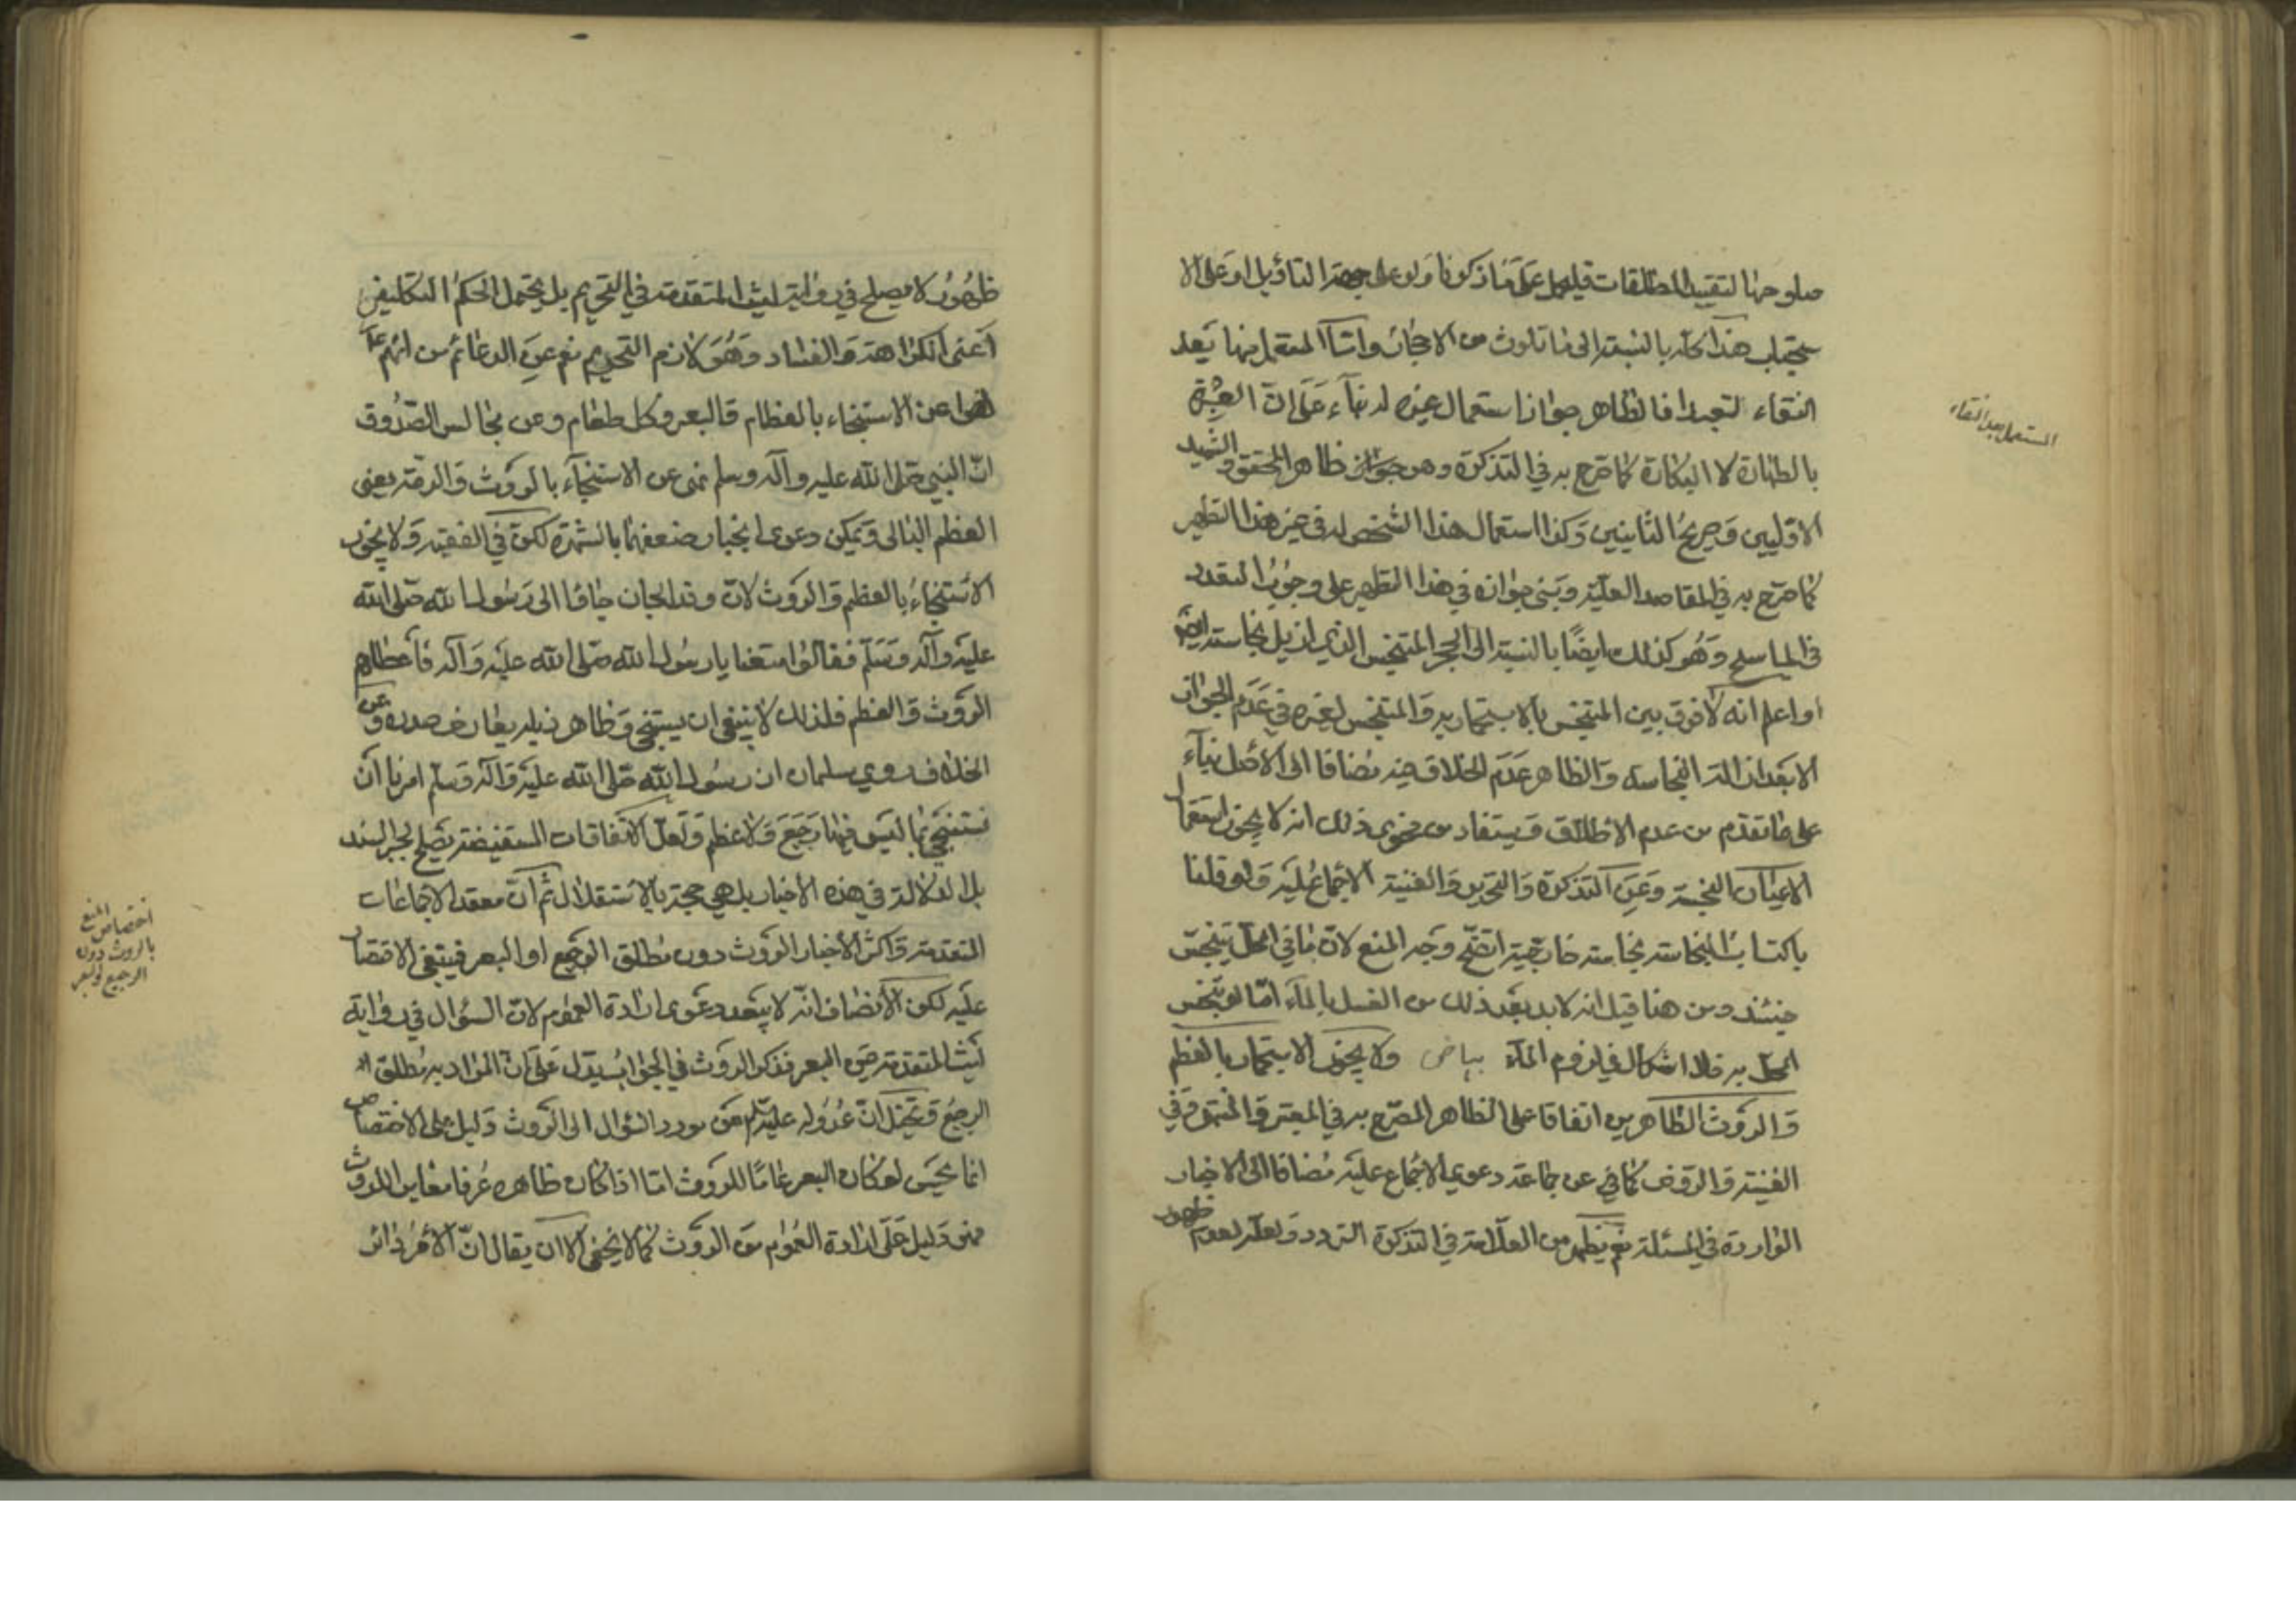 صلوحها لتقييد المطلقات فليحمل على ما ذكرنا ولو على جهة التأويل او على الا
ستحباب هذا كله بالنسبة الى ما تلوث من الاحجار واما المستعمل منها بعد
النقاء لتعبدا فالظاهر جواز استعمال غيره له بناء على ان العبرة
بالطهارة لا البكارة كما صرح به في التذكرة وهو ظاهر المحقق والشهيد
الاولين وصريح الثانيين وكذا استعمال هذا الشخص له في غير هذا التطهير
كما صرح به في المقاصد العلية ويبنى جوازه في هذا التطهير على وجوب التعدد
في الماسح وهو كذلك ايضا بالنسبة الى الحجر المتنجس الذي ازيل نجاسته
واعلم انه لا فرق بين المتنجس بالاستجمار به والمتنجس لغيره في عدم الجواز
الا بعد ازالة النجاسة والظاهر عدم الخلاف فيه مضافا الى الاصل بناء
على ما تقدم من عدم الاطلاق ويستفاد من فحوى ذلك انه لا يجوز استعمال
الاعيان النجسة وعن التذكرة والتحرير والغنية الاجماع عليه ولو قلنا
باكتساب النجاسة نجاسة خارجية اتضح وجه المنع لان ما في المحل يتنجس
حينئذ ومن هنا قيل انه لا بد بعد ذلك من الغسل بالماء اما لو تنجس
المحل به فلا اشكال في لزوم الماء بياض ولا يجوز الاستجمار بالعظم
والروث الطاهرين اتفاقا على الظاهر المصرح به في المعتبر والمنتهى وفي
الغنية والروض كما في عن جماعة دعوى الاجماع عليه مضافا الى الاخبار
الواردة في المسئلة نعم يظهر من العلامة في التذكرة التردد ولعله لعدم
ظهور
المستعمل بعد النقاء
ظهور لا يصلح في رواية ليث المتقدمة في التحريم بل يحتمل الحكم التكليفي
اعنى الكراهة والفساد وهو لازم التحريم نعم عن الدعائم من انهم ع
نهوا عن الاستنجاء بالعظام والبعر وكل طعام وعن مجالس الصدوق
ان النبي صلى الله عليه وآله وسلم نهى عن الاستنجاء بالروث والرمة يعنى
العظم البالى ويمكن دعوى انجبار ضعفها بالشهرة لكن في الفقيه ولا يجوز
الاستنجاء بالعظم والروث لان وفد الجان جاؤا الى رسول الله صلى الله
عليه وآله وسلم فقالوا متعنا يا رسول الله صلى الله عليه وآله فأعطاهم
الروث والعظم فلذلك لا ينبغي ان يستنجى وظاهر ذيله يعارض صدره وعن
الخلاف روى سلمان ان رسول الله صلى الله عليه وآله وسلم امرنا ان
نستنجي بما ليس فيها رجيع ولا عظم ولعل الاتفاقات المستفيضة يصلح لجبر السند
بل الدلالة في هذه الاخبار بل هي حجة بالاستقلال ثم ان معقد الاجماعات
المتقدمة واكثر الأخبار الروث دون مطلق الرجيع او البعر فينبغي الاقتصار
عليه لكن الانصاف انه لا يبعد دعوى ارادة العموم لان السؤال في رواية
ليث المتقدمة عن البعر فذكر الروث في الجواب يدل على ان المراد به مطلق
الرجيع ويحتمل ان عدوله عليه السلام عن مورد السؤال الى الروث دليل على الاختصاص
انما يحسن لو كان البعر عاما للروث اما اذا كان ظاهره عرفا مغاير للروث
فهو دليل على ارادة العموم من الروث كما لا يخفى الا ان يقال ان الأمر دائر
اختصاص المنع
بالروث دون
الرجيع والبعر